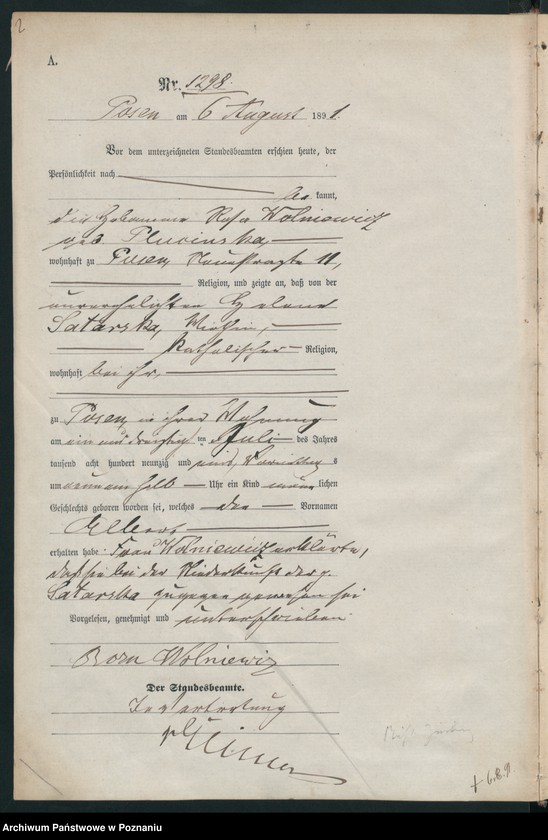 2
A.
Nr. 1298.
Posen am 6 August 1891.
Vor dem unterzeichneten Standesbeamten erschien heute, der
Persönlichkeit nach
be kannt,
die Hebamme Rosa Wolniewicz
geb Plucinska,
wohnhaft zu Posen, 11,
Religion, und zeigte an, daß von der
unverehelichten Helene
Satarska,
katholischer Religion,
wohnhaft bei ihr,
zu Posen, in ihrer Wohnung
am ein und dreißigsten Juli des Jahres
tausend acht hundert neunzig und eins, Vormittags
um neun ein halb Uhr ein Kind männlichen
Geschlechts geboren worden sei, welches den Vornamen
Albert
erhalten habe. Frau Wolniewicz erklärte,
daß sie bei der Niederkunft der p.
Satarska zugegen gewesen sei
Vorgelesen, genehmigt und unterschrieben
Wolniewicz
Der Standesbeamte.
In Vertretung
+ 6.8.91
Archiwum Państwowe w Poznaniu